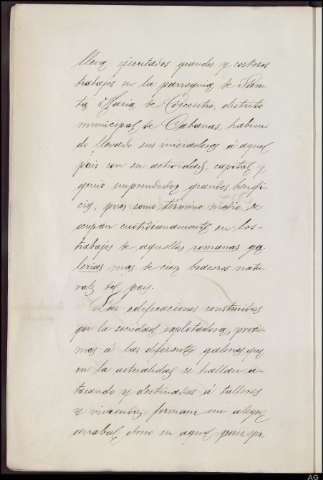 lleva ejecutados grandes y costosos
trabajos en la parroquia de San-
ta Maria de Cereixido, distrito
municipal de Cabanas, habien-
do llevado sus iniciadores á aquel
pais con su actividad, capital y
genio emprendedor grandes benefi-
cios, pues como término medio se
ocupan cuotidianamente en los
trabajos de aquellas romanas ga-
lerias mas de cien braceros natu-
rales del pais.
Las edificaciones construidas
por la sociedad explotadora, próxi-
mas á las diferentes galerias que
en la actualidad se hallan a-
tacando y destinadas á talleres
y viviendas, forman un alegre
arrabal, dando en aquel
AG